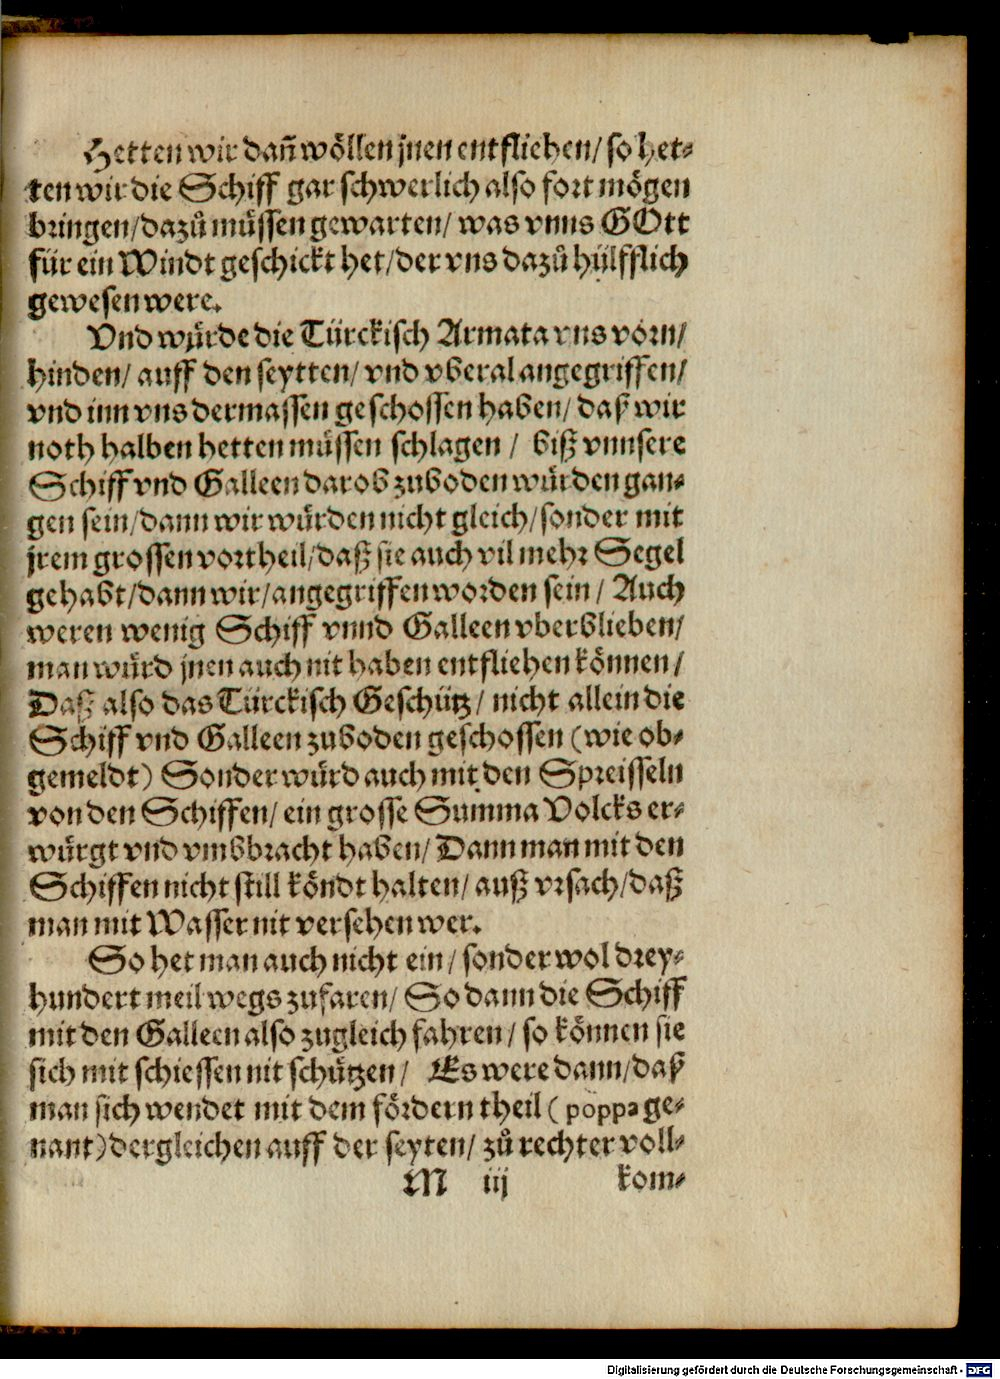 Hetten wir dañ wöllen jnen entfliehen/ so het-
ten wir die Schiff gar schwerlich also fort mögen
bringen/ dazů müssen gewarten/ was vnns GOtt
für ein Windt geschickt het/ der vns dazů hülfflich
gewesen were.
Vnd würde die Türckisch Armata vns vorn/
hinden/ auff den seytten/ vnd vberal angegriffen/
vnd inn vns dermassen geschossen haben/ daß wir
noth halben hetten müssen schlagen / biß vnnsere
Schiff vnd Galleen darob zuboden würden gan-
gen sein/ dann wir würden nicht gleich/ sonder mit
jrem grossen vortheil/ daß sie auch vil mehr Segel
gehabt/ dann wir/ angegriffen worden sein / Auch
weren wenig Schiff vnnd Galleen vberblieben/
man würd jnen auch nit haben entfliehen können /
Daß also das Türckisch Geschütz / nicht allein die
Schiff vnd Galleen zuboden geschossen (wie ob-
gemeldt) Sonder würd auch mit den Spreisseln
von den Schiffen/ ein grosse Summa Volcks er-
würgt vnd vmbbracht haben/ Dann man mit den
Schiffen nicht still köndt halten/ auß vrsach/ daß
man mit Wasser nit versehen wer.
So het man auch nicht ein / sonder wol drey-
hundert meil wegs zufaren/ So dann die Schiff
mit den Galleen also zugleich fahren / so können sie
sich mit schiessen nit schützen / Es were dann/ daß
man sich wendet mit dem fördern theil ( poppa ge-
nant) dergleichen auff der seyten/ zů rechter voll-
M iij kom-
Digitalisierung gefördert durch die Deutsche Forschungsgemeinschaft - DFG